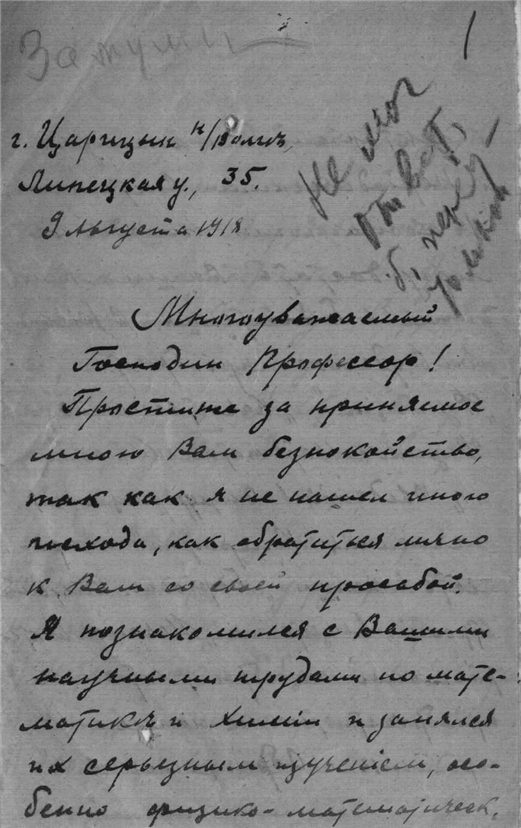 1
г. Царицын н/Волгѣ,
Липецкая у., 35.
9 Августа 1918
Не мог
отвѣт,
б. перег
Многоуважаемый
Господин Профессор!
Простите за
мною Вам безпокойство,
так как я не нашел иного
исхода, как обратиться лично
к Вам со своей просьбой.
Я познакомился с Вашими
научными трудами по мате-
матикѣ и химіи и занялся
их серьезным изученіем, осо-
бенно физико-математическ.